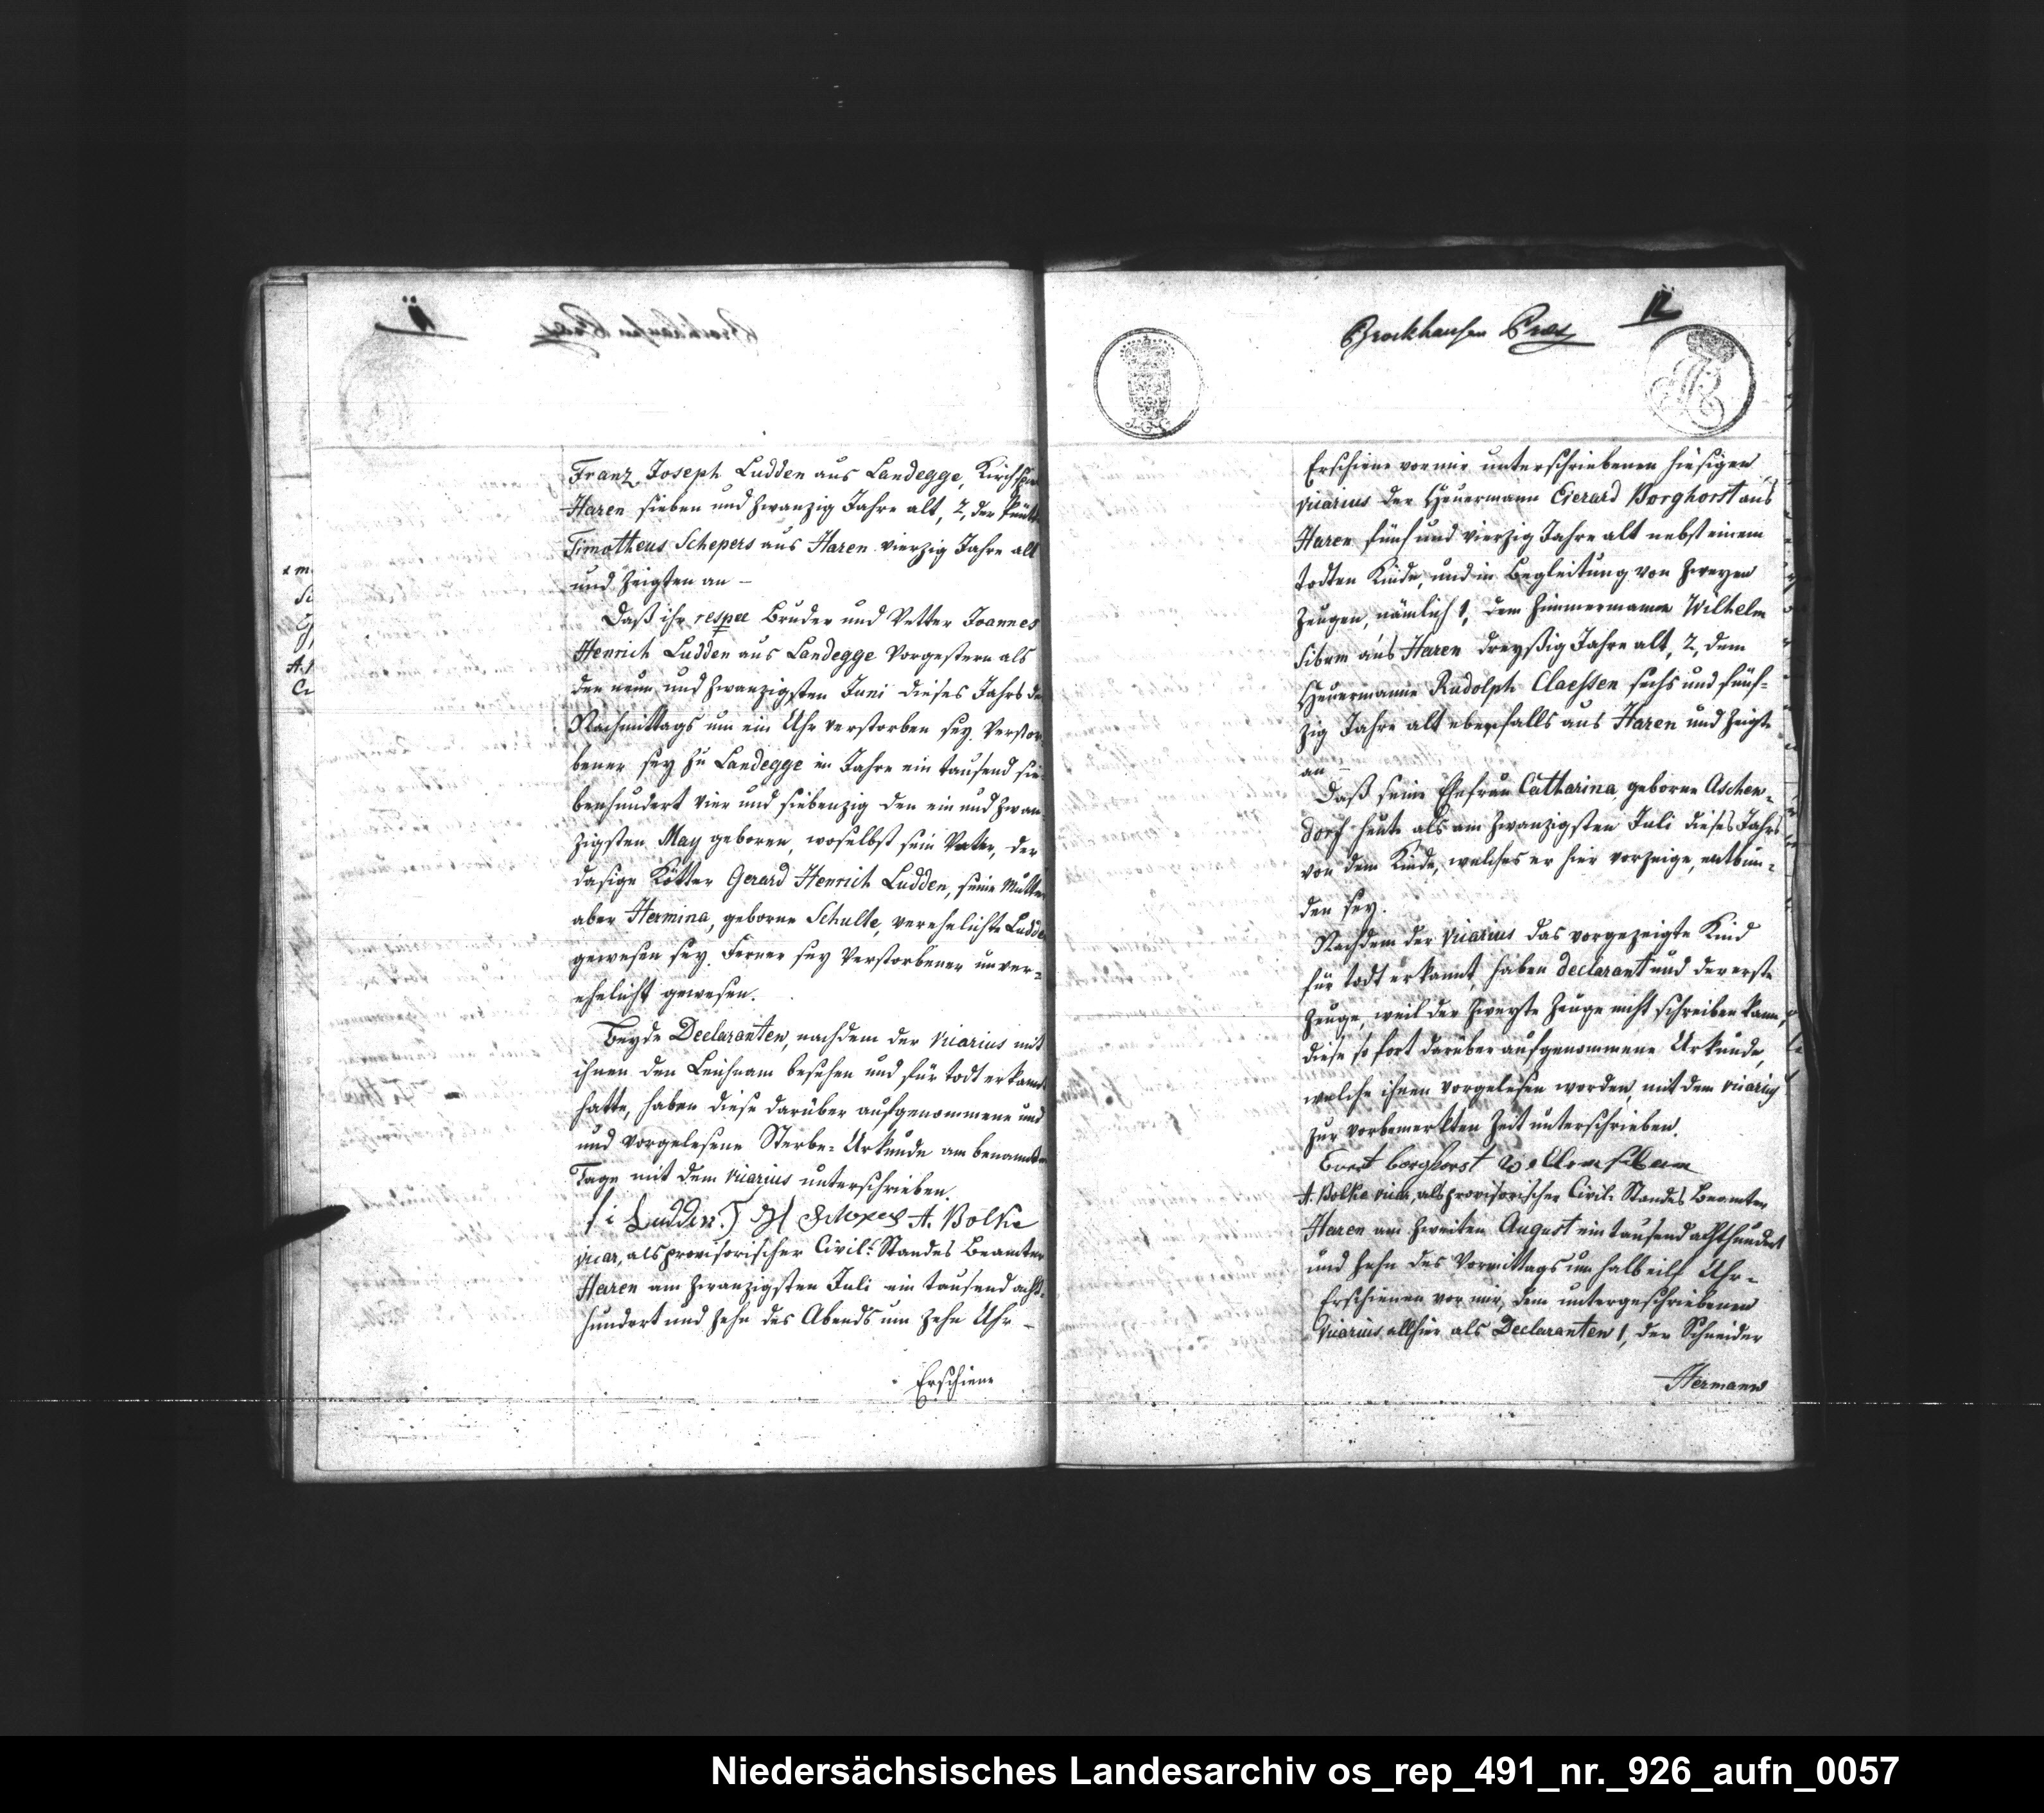 Franz Joseph Ludden aus Landegge, Kirchspiel
Haren sieben und zwanzig Jahre alt, 2, der
Timotheus Schepers aus Haren vierzig Jahre alt
und zeigten an –
Daß ihr respee Bruder und Vetter Joannes
Henrich Ludden aus Landegge vorgestern als
den neun und zwanzigsten Juni dieses Jahrs des
Nachmittags um ein Uhr verstorben sey. Verstor-
bener sey zu Landegge im Jahre ein tausend sie-
benhundert vier und siebenzig den ein und zwan-
zigsten May geboren, woselbst sein Vatter, der
dasige Kötter Gerard Henrich Ludden, seine Mutter
aber Hermina, geborne Schulte, verehelichte Ludden
gewesen sey. Ferner sey Verstorbener unver-
ehelicht gewesen.
Beyde Declaranten, nachdem der Vicarius mit
ihnen den Leichnam besehen und für todt erkannt
hatte, haben diese darüber aufgenommene und
und vorgelesene Sterbe-Urkunde am benannten
Tage mit dem Vicarius unterschrieben.
f i Ludden. A. Bolke
vicar, als provisorischer Civil-Standes Beamter
Haren am zwanzigsten Juli ein tausend acht-
hundert und zehn des Abends um zehn Uhr –
Erschiene
12
Brockhausen Præs
Erschiene vor mir unterschriebenen hiesigen
Vicarius der Heuermann Gerard Borghorst aus
Haren fünf und vierzig Jahre alt nebst einem
todten Kinde, und in Begleitung von zweyen
Zeugen, nämlich 1, dem Zimmermanne Wilhelm
Sibum aus Haren dreyßig Jahre alt, 2, dem
Heuermanne Rudolph Claeßen sechs und fünf-
zig Jahre alt ebenfalls aus Haren und zeigte
an –
Daß seine Ehefrau Catharina, geborne Aschen-
dorf heute als am zwanzigsten Juli dieses Jahrs
von dem Kinde, welches er hier vorzeige, entbun-
den sey.
Nachdem der Vicarius das vorgezeigte Kind
für todt erkannt, haben declarant und der erste
Zeuge, weil der zweyte Zeuge nicht schreiben kann,
diese so fort darüber aufgenommene Urkunde,
welche ihnen vorgelesen worden, mit dem Vicarius
zur vorbemerkten Zeit unterschrieben.
Evert borghorst willem sibum
A. Bolke vicar, als provisorischer Civil-Standes Beamter
Haren am zweiten August ein tausend achthundert
und zehn des Vormittags um halb eilf Uhr –
Erschienen vor mir, dem untergeschriebenen
Vicarius allhier als Declaranten 1, der Schneider
Hermann
Niedersächsisches Landesarchiv os_rep_491_nr._926_aufn_0057